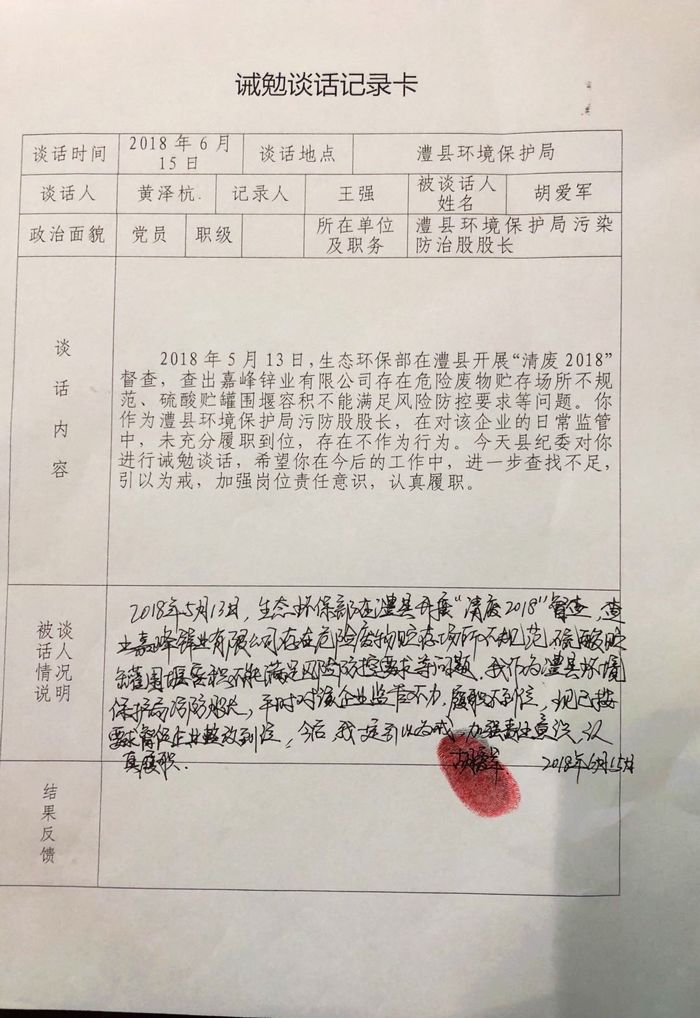 诫勉谈话记录卡
谈话时间 2018 年 6 月 15 日 谈话地点 澧县环境保护局
谈话人 黄泽杭. 记录人 王强 被谈话人姓名 胡爱军
政治面貌 党员 职级 所在单位及职务 澧县环境保护局污染防治股股长
谈话内容
2018 年 5 月 13 日,生态环保部在澧县开展“清废 2018”
督查，查出嘉峰锌业有限公司存在危险废物贮存场所不规
范、硫酸贮罐围堰容积不能满足风险防控要求等问题。你
作为澧县环境保护局污防股股长，在对该企业的日常监管
中，未充分履职到位，存在不作为行为。今天县纪委对你
进行诫勉谈话，希望你在今后的工作中，进一步查找不足，
引以为戒，加强岗位责任意识，认真履职。
被谈话人情况说明
2018年5月13日，生态环保部在澧县开展“清废2018”督查，查
出嘉峰锌业有限公司存在危险废物贮存场所不规范、硫酸贮
罐围堰容积不能满足风险防控要求等问题，我作为澧县环境
保护局污防股长，平时对该企业监管不力，履职不到位，现已按
要求督促企业整改到位，今后，我定引以为戒，加强责任意识，认
真履职.
胡爱军 2018年6月15日
结果反馈